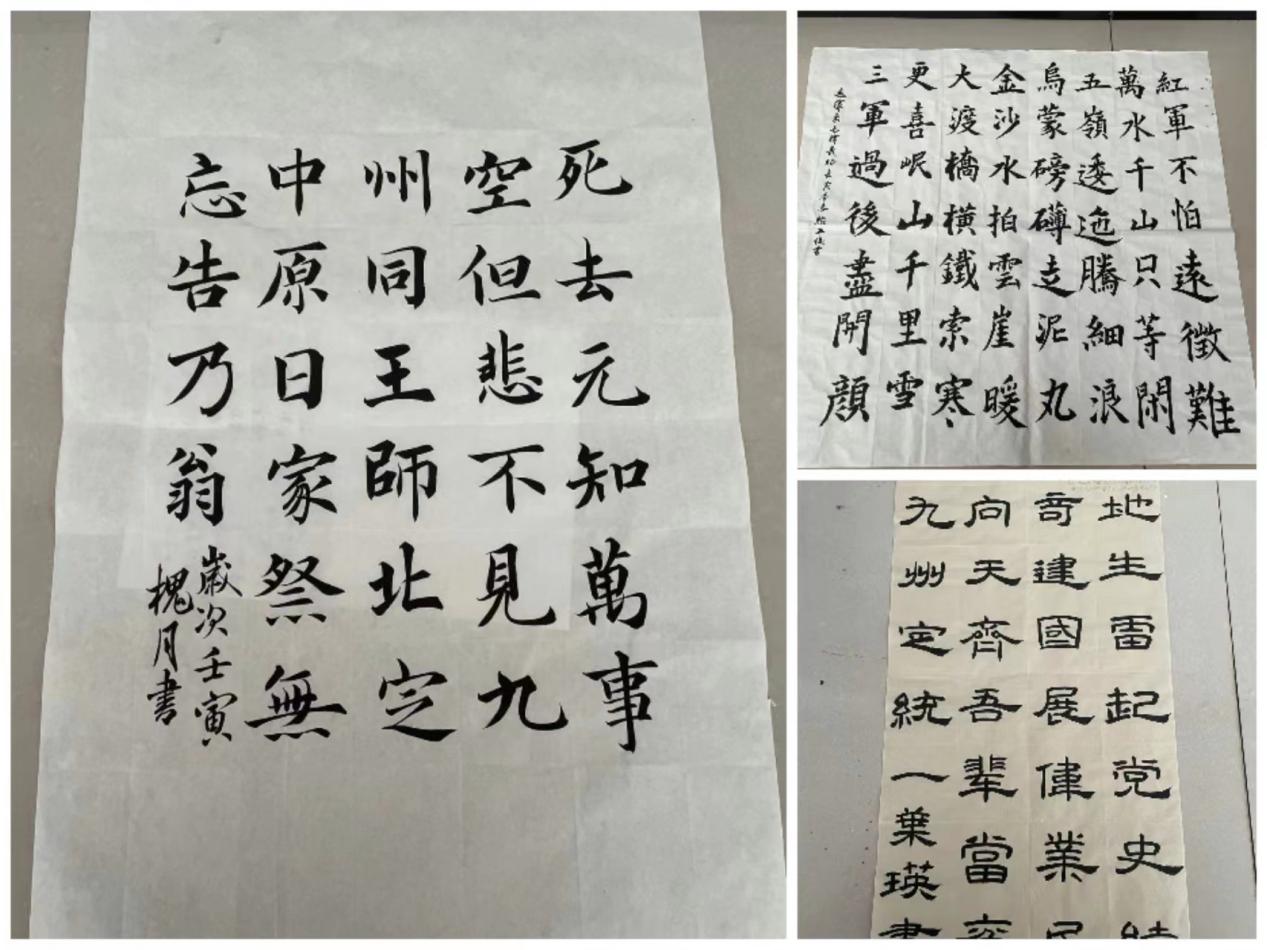 死去元知萬事
空但悲不見九
州同王師北定
中原日家祭無
忘告乃翁
歲次壬寅
槐月書
紅軍不怕遠徵難
萬水千山只等閑
五嶺逶迤騰細浪
烏蒙磅礴走泥丸
金沙水拍雲崖暖
大渡橋橫鐵索寒
更喜岷山千里雪
三軍過後盡開顏
地生雷起党史
奇建國展偉業
向天齊吾輩當
九州定統一葉瑛書